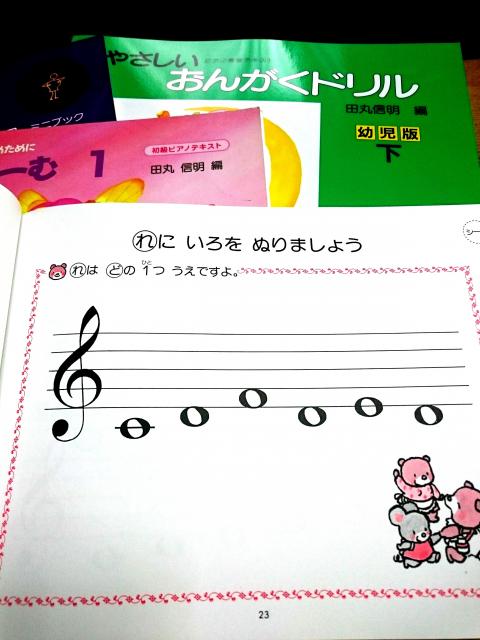 やさしい
おんがくドリル
田丸信明 編
幼児版
下
ーブック
めために
ーむ 1
初級ピアノテキスト
田丸 信明 編
れに いろを ぬりましょう
シー
れは どの 1つ うえですよ。
ひと
23